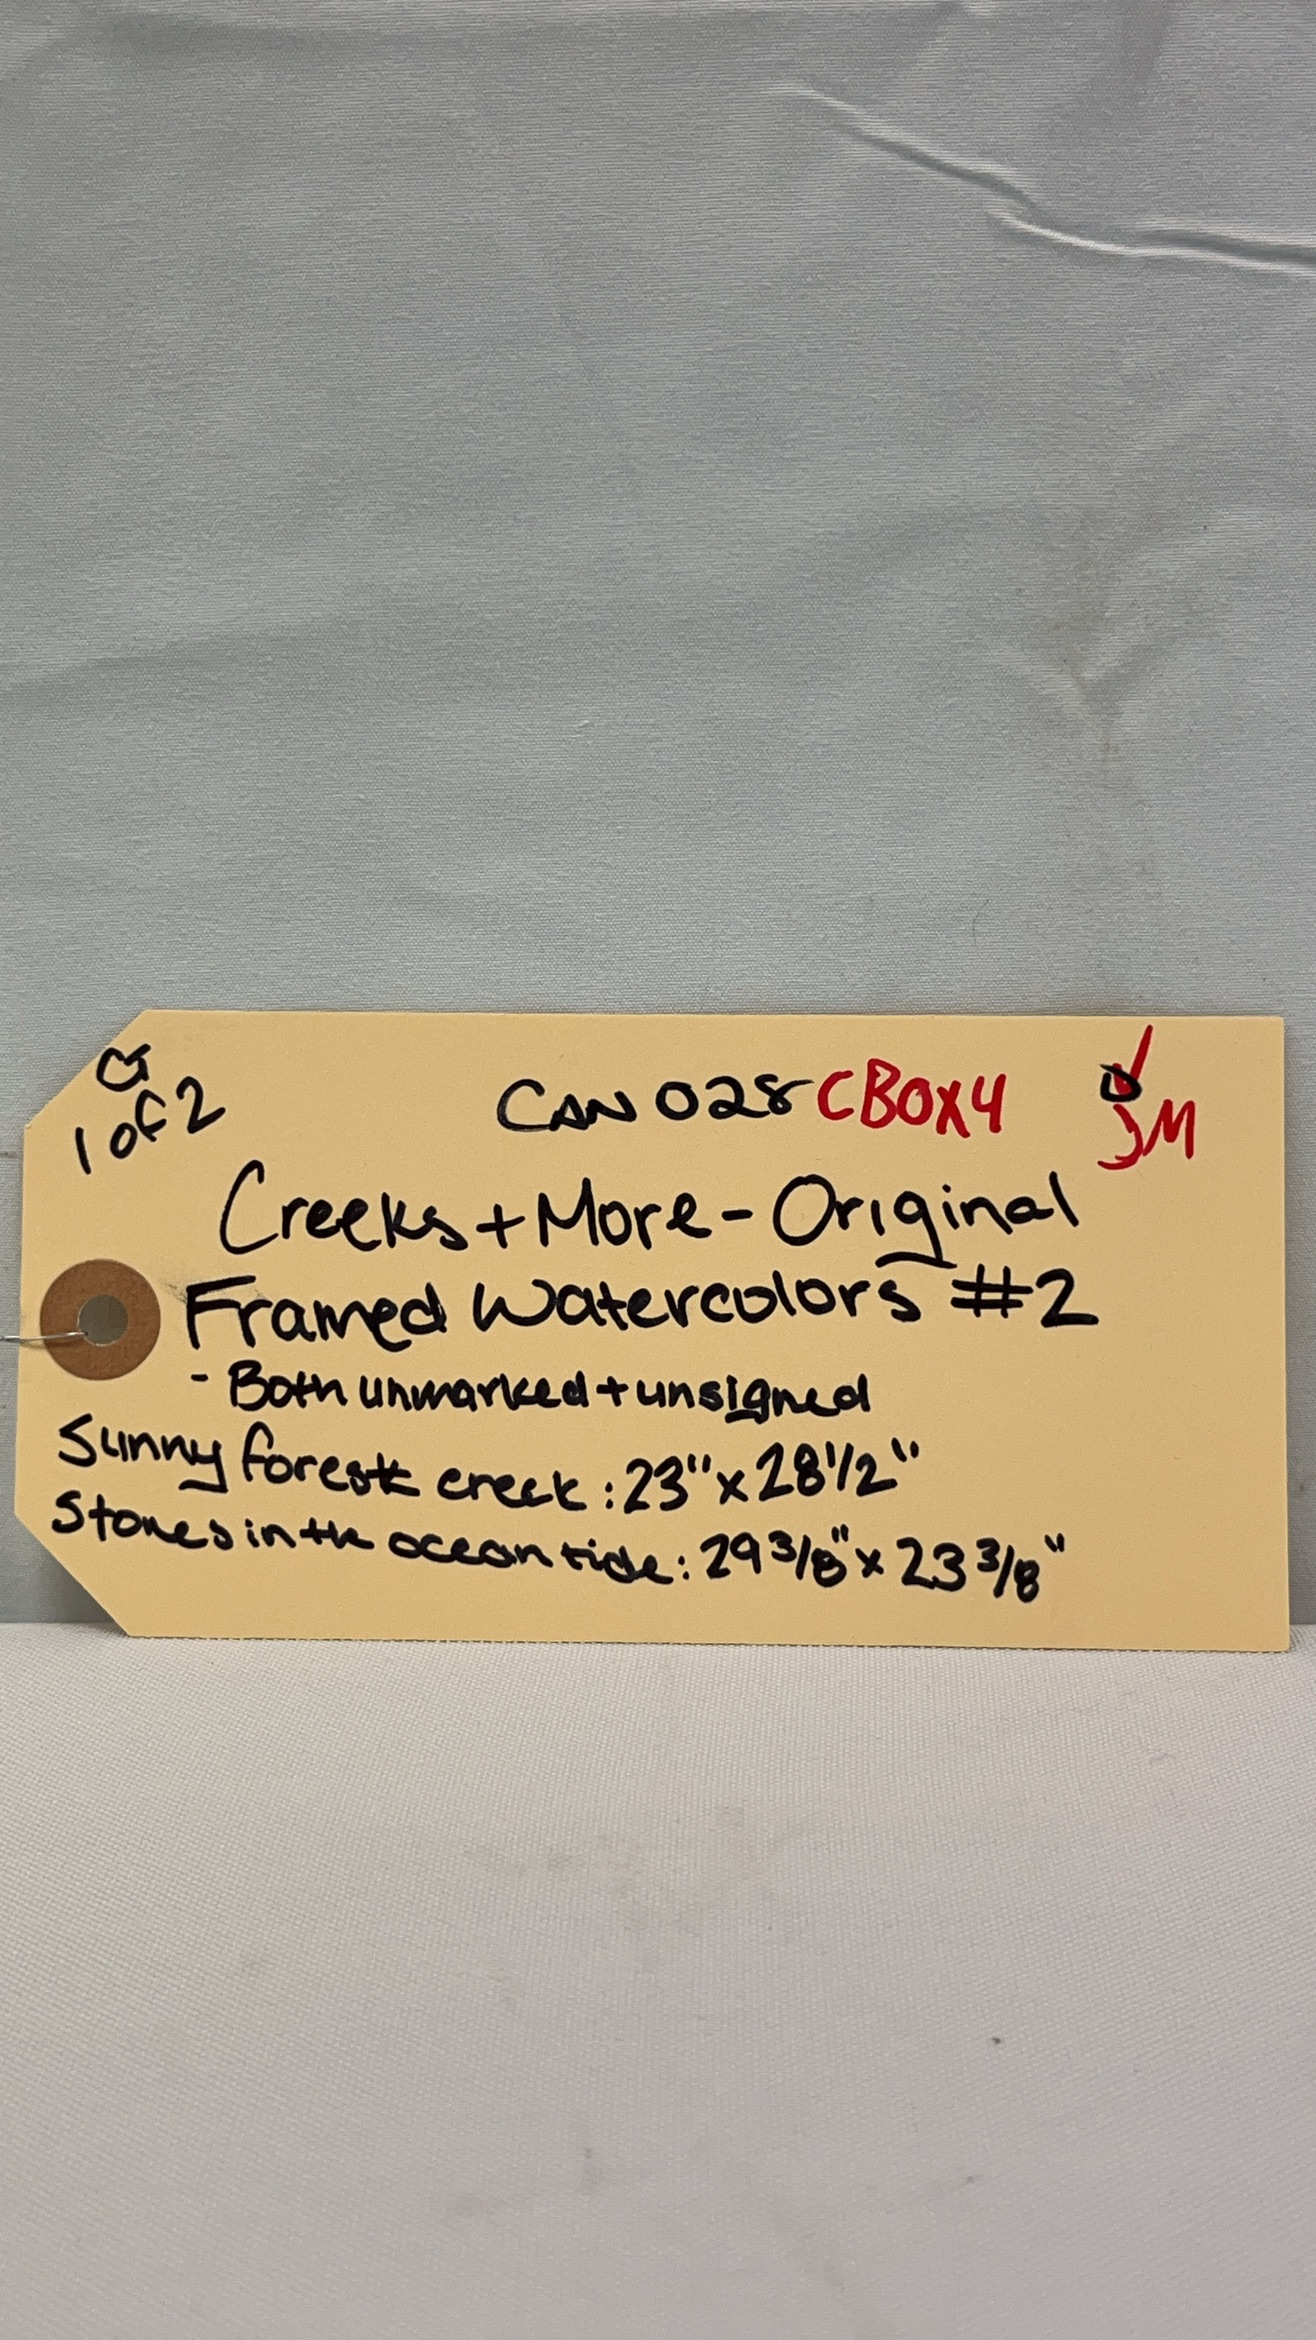 1 of 2
CAN 028 CBOX4
JM
Creeks + More - Original
Framed Watercolors #2
- Both unmarked + unsigned
Sunny forest creek : 23" x 28 1/2"
Stones in the ocean tide : 29 3/8" x 23 3/8"